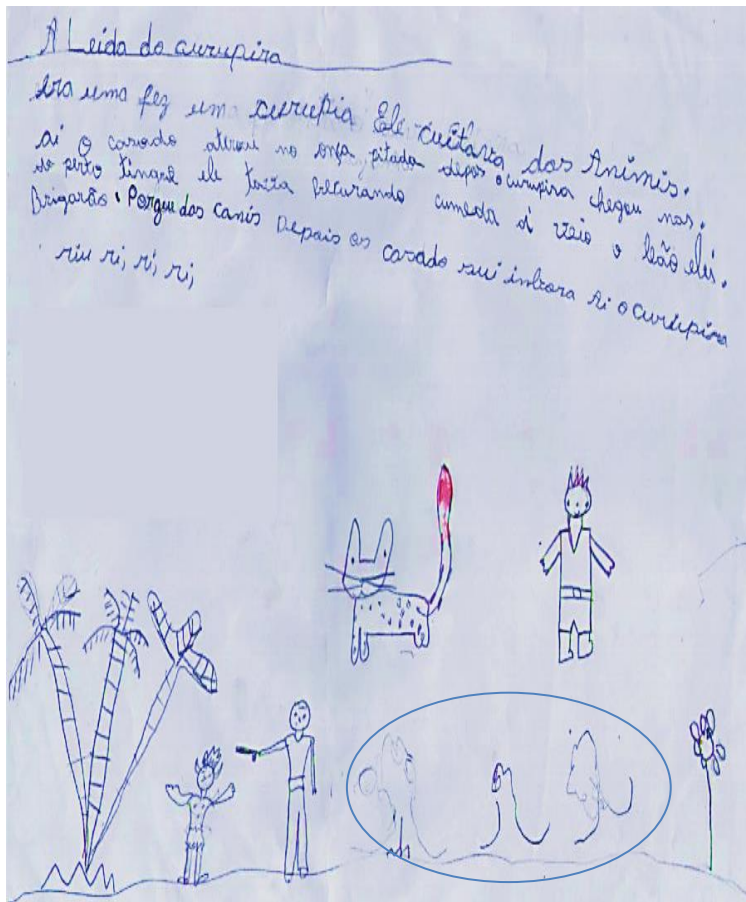 A Leida do curupira
era uma fez um curupia Ele cuitava dos Animis.
ai O carado atirou no onfa pitada depos o curupira chegou nos.
do perto tingre ele tatta Pecurando cumeda ai veio o leão eles.
Brigarão. Porque dos canis Depais os carado sui imbora Ai o curupira
riu ri, ri, ri,